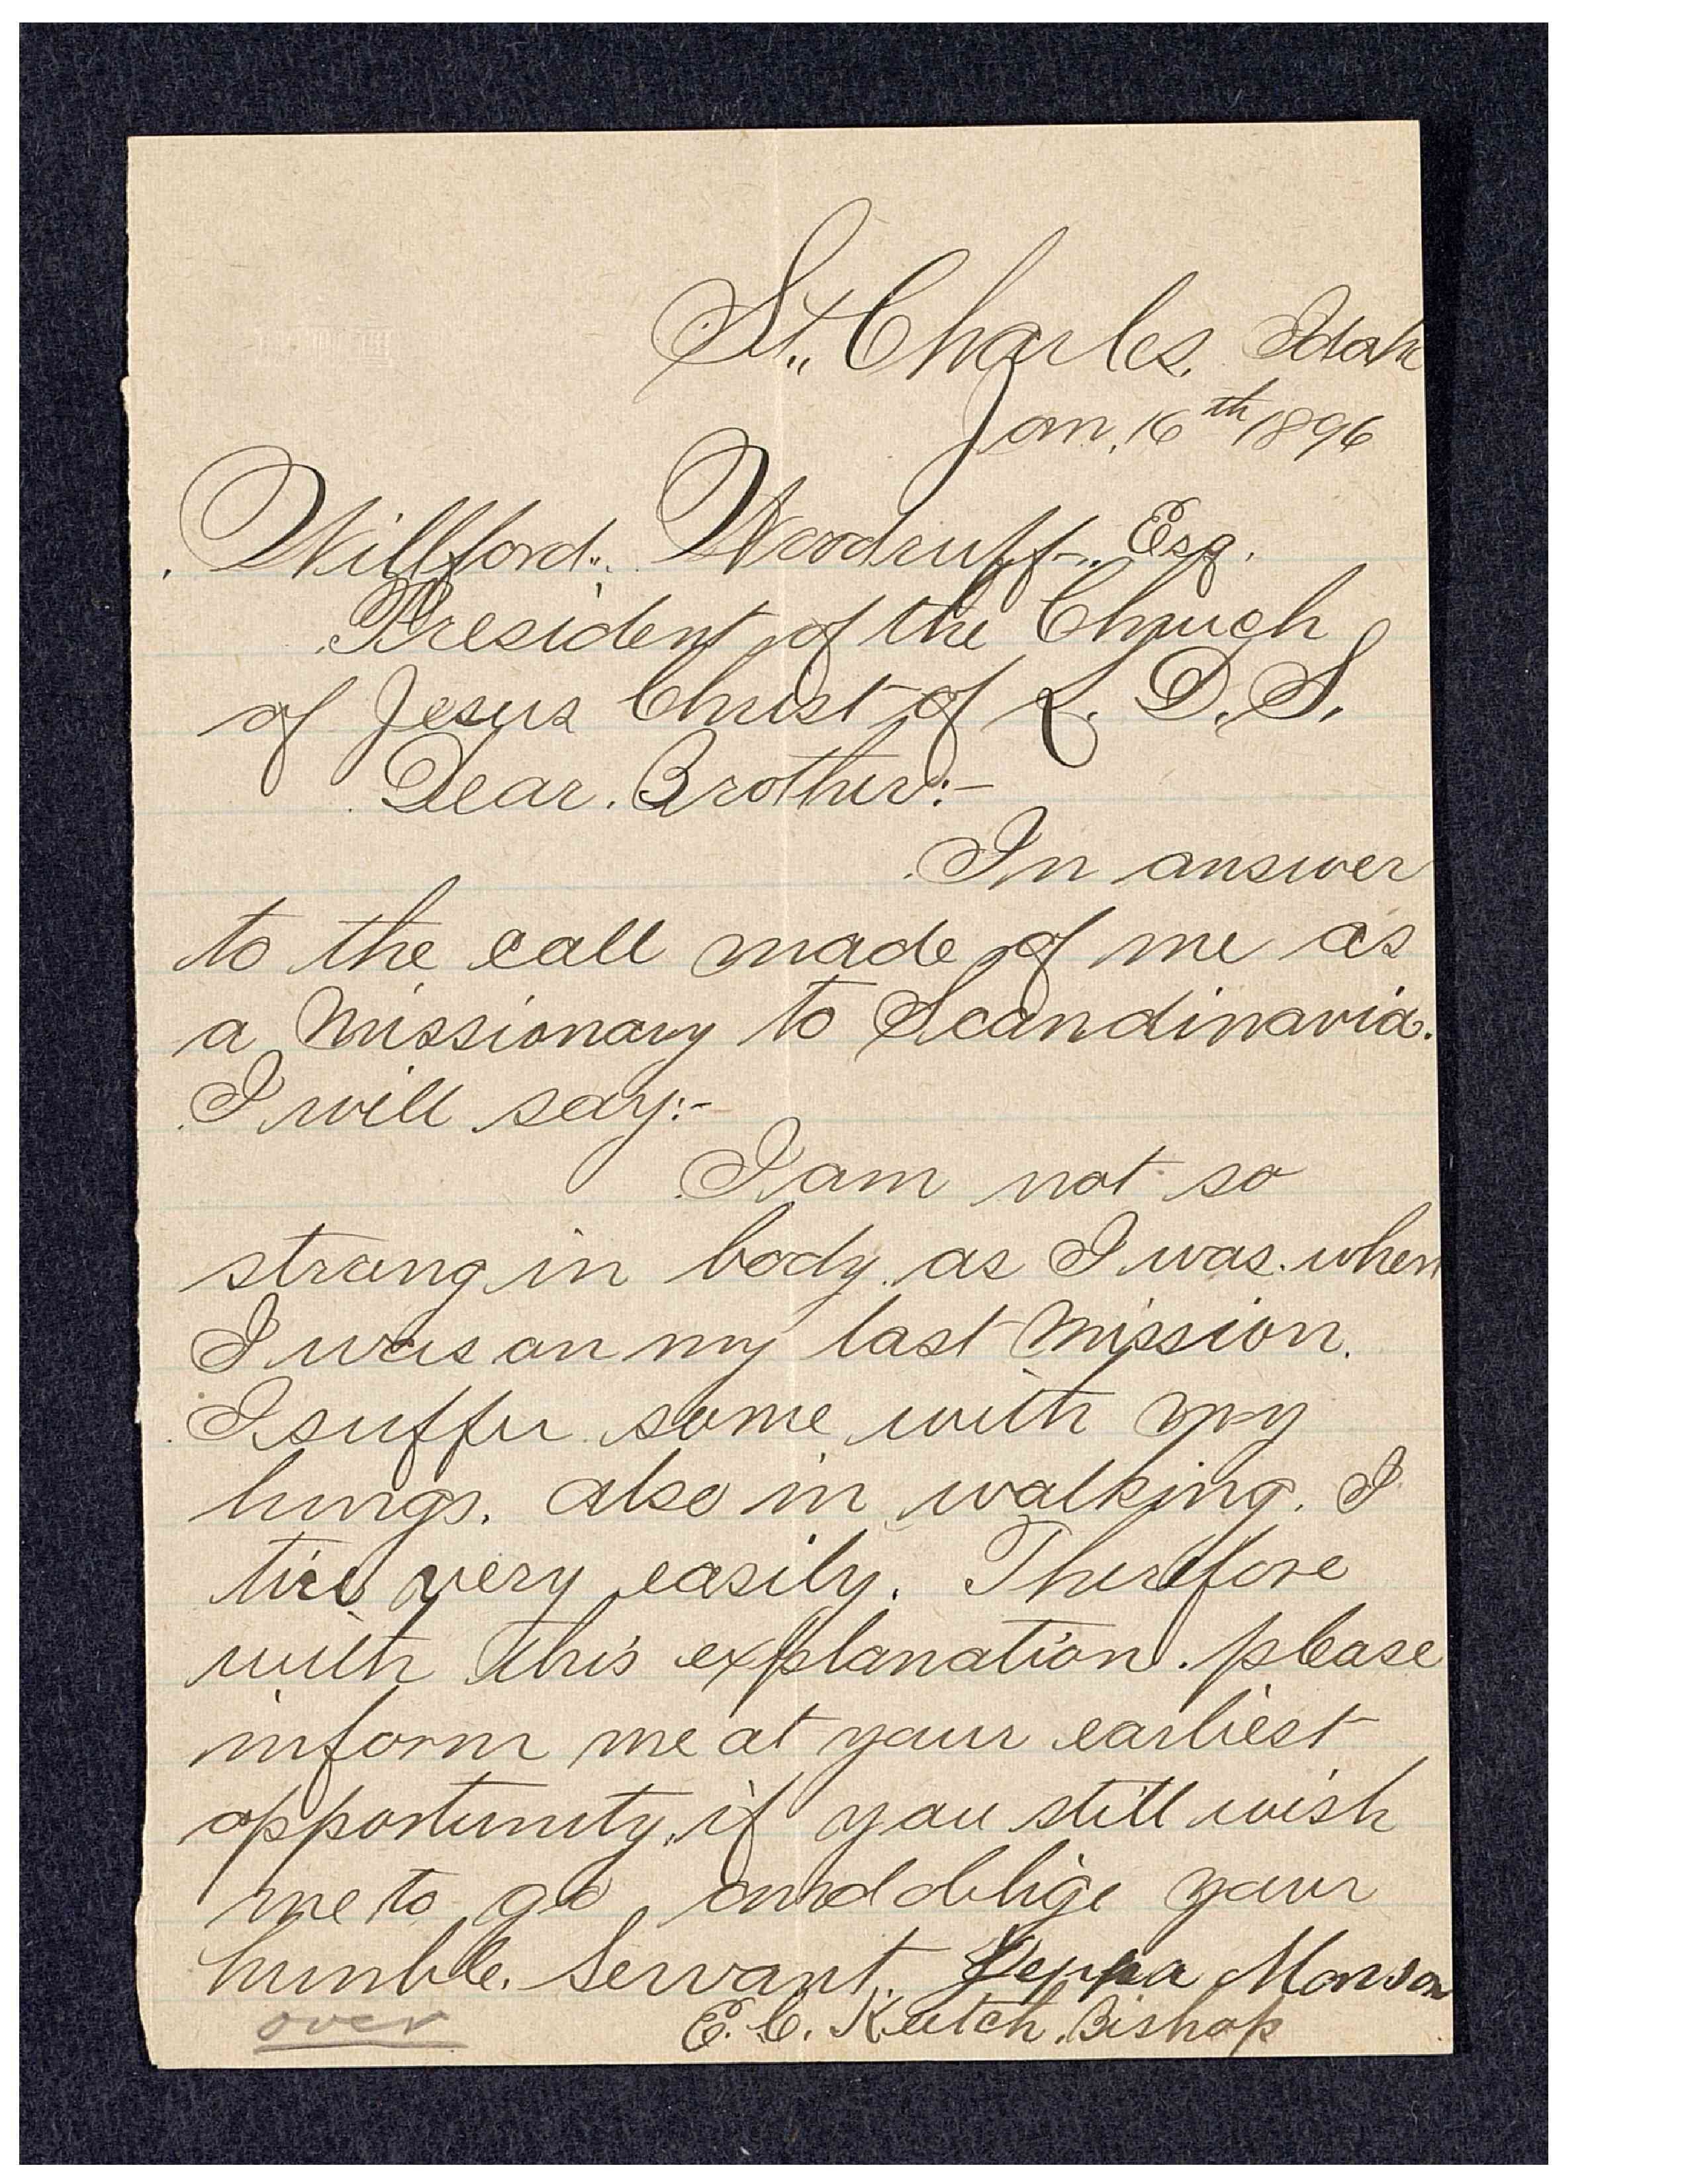 St. Charles, Idaho
Jan, 16th 1896
Willford. Woodruff. Esq.
President of the Church
of Jesus Christ of L. D. S.
Dear. Brother:-
In answer
to the call made of me as
a missionary to Scandinavia.
I will say:-
I am not so
strong in body. as I was. when
I was on my last mission.
I suffer some with my
lungs. also in walking. I
tire very easily. Therefore
with this explanation. please
inform me at your earliest
opportunity, if you still wish
me to go, and oblige your
humble. Servant. Monson
E. C. Keetch. Bishop
over